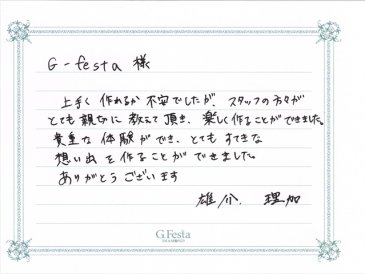 G-festa 様
上手く作れるか不安でしたが、スタッフの方々が
とても親切に教えて頂き、楽しく作ることができました。
貴重な体験ができ、とてもすてきな
想い出を作ることができました。
ありがとうございます
雄介. 理加
G.Festa
DIAMOND